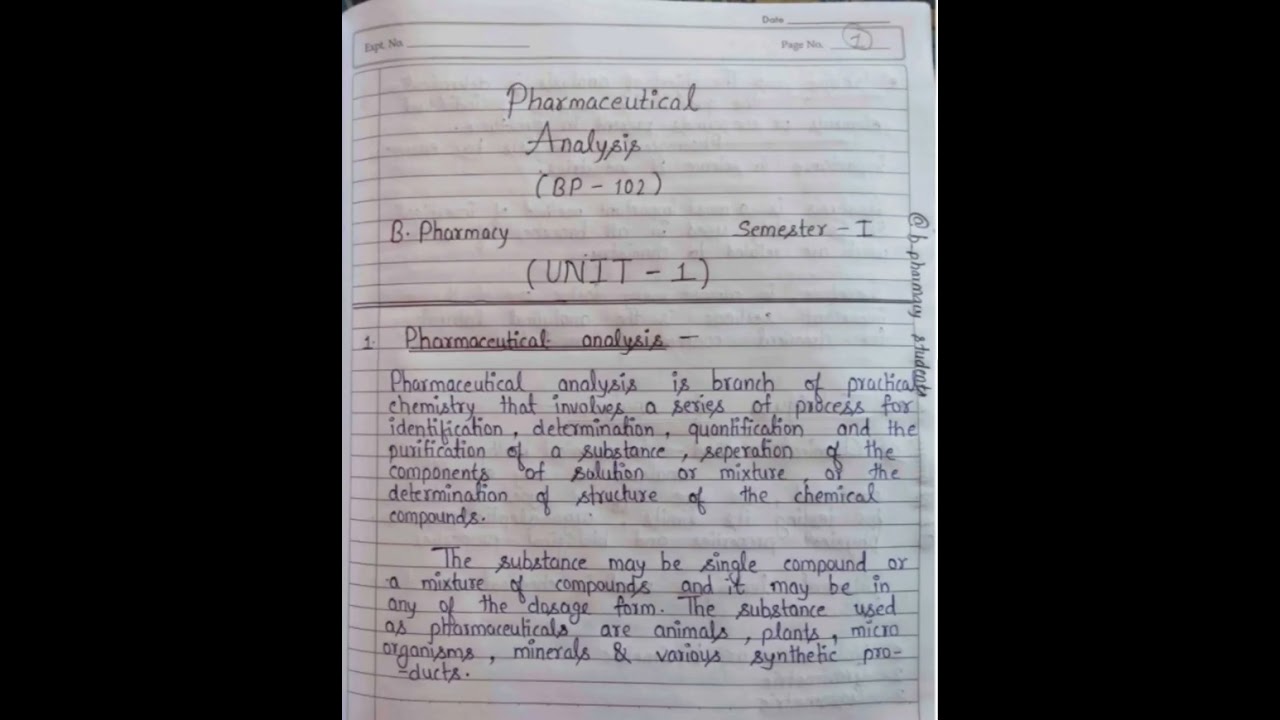 Date
Expt. No.
Page No. 1
Pharmaceutical
Analysis
(BP - 102)
B. Pharmacy Semester - I
(UNIT - 1)
1. Pharmaceutical analysis -
Pharmaceutical analysis is branch of practical
chemistry that involves a series of process for
identification, determination, quantification and the
purification of a substance, seperation of the
components of solution or mixture, or the
determination of structure of the chemical
compounds.
The substance may be single compound or
a mixture of compounds and it may be in
any of the dosage form. The substance used
as pharmaceuticals are animals, plants, micro
organisms, minerals & various synthetic pro-
-ducts.
@b.pharmacy students